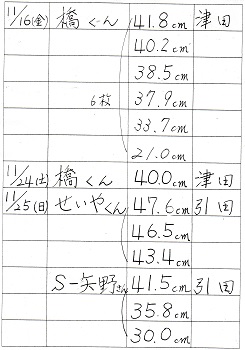 11/16(金) 橋くん 41.8cm 津田
40.2cm
38.5cm
6枚 37.9cm
33.7cm
21.0cm
11/24(土) 橋くん 40.0cm 津田
11/25(日) せいやくん 47.6cm 引田
46.5cm
43.4cm
S-矢野さん 41.5cm 引田
35.8cm
30.0cm